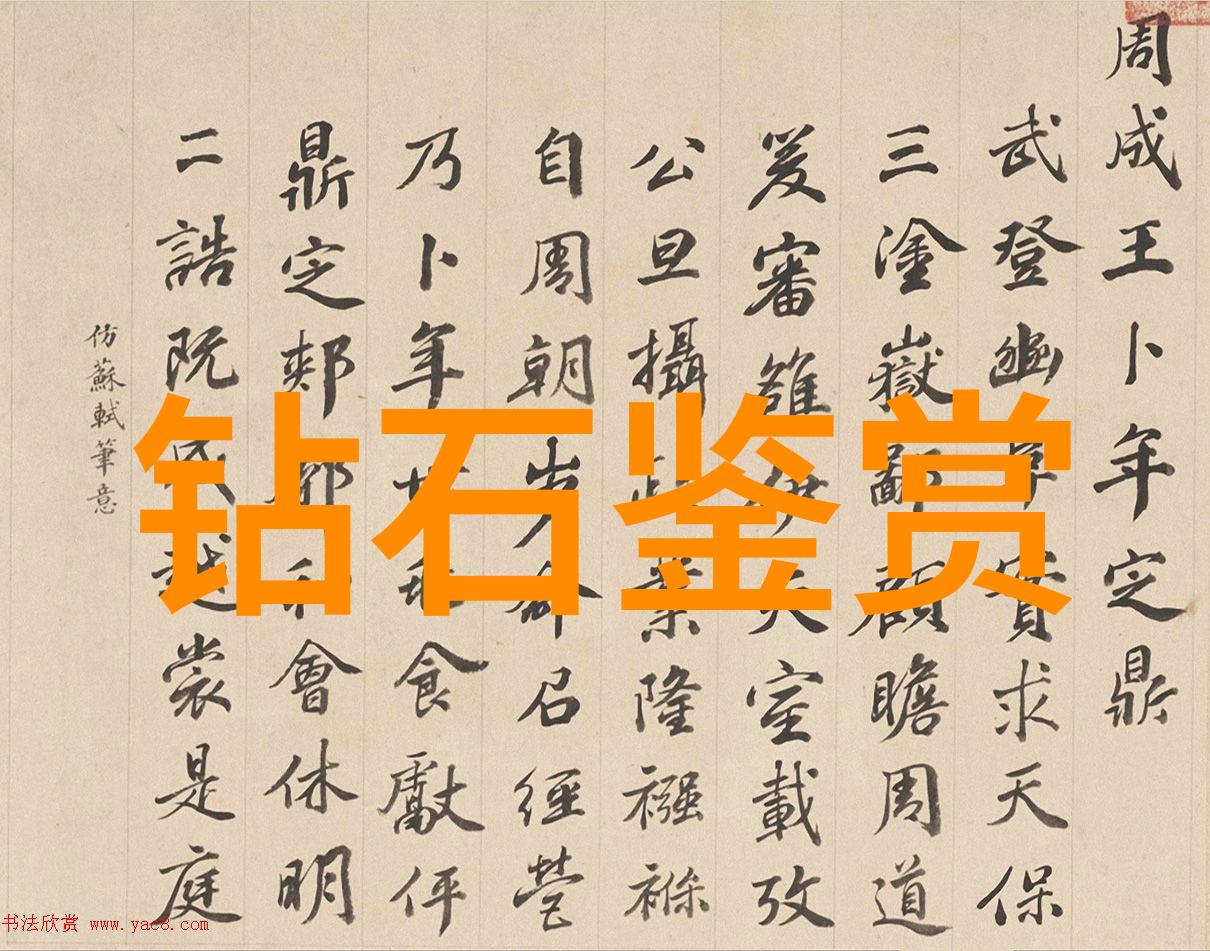 周成王卜年定鼎
武登豳阜實求天保
三塗嶽鄙顧瞻周道
爰審雒伊天室載攷
公旦攝業隆襁褓
自周朝步命召經營
乃卜年食獻伻
鼎定郟鄏和會休明
二誥既越裳是庭
仿蘇軾筆意
钻石鉴赏
书法欣赏 www.yac8.com